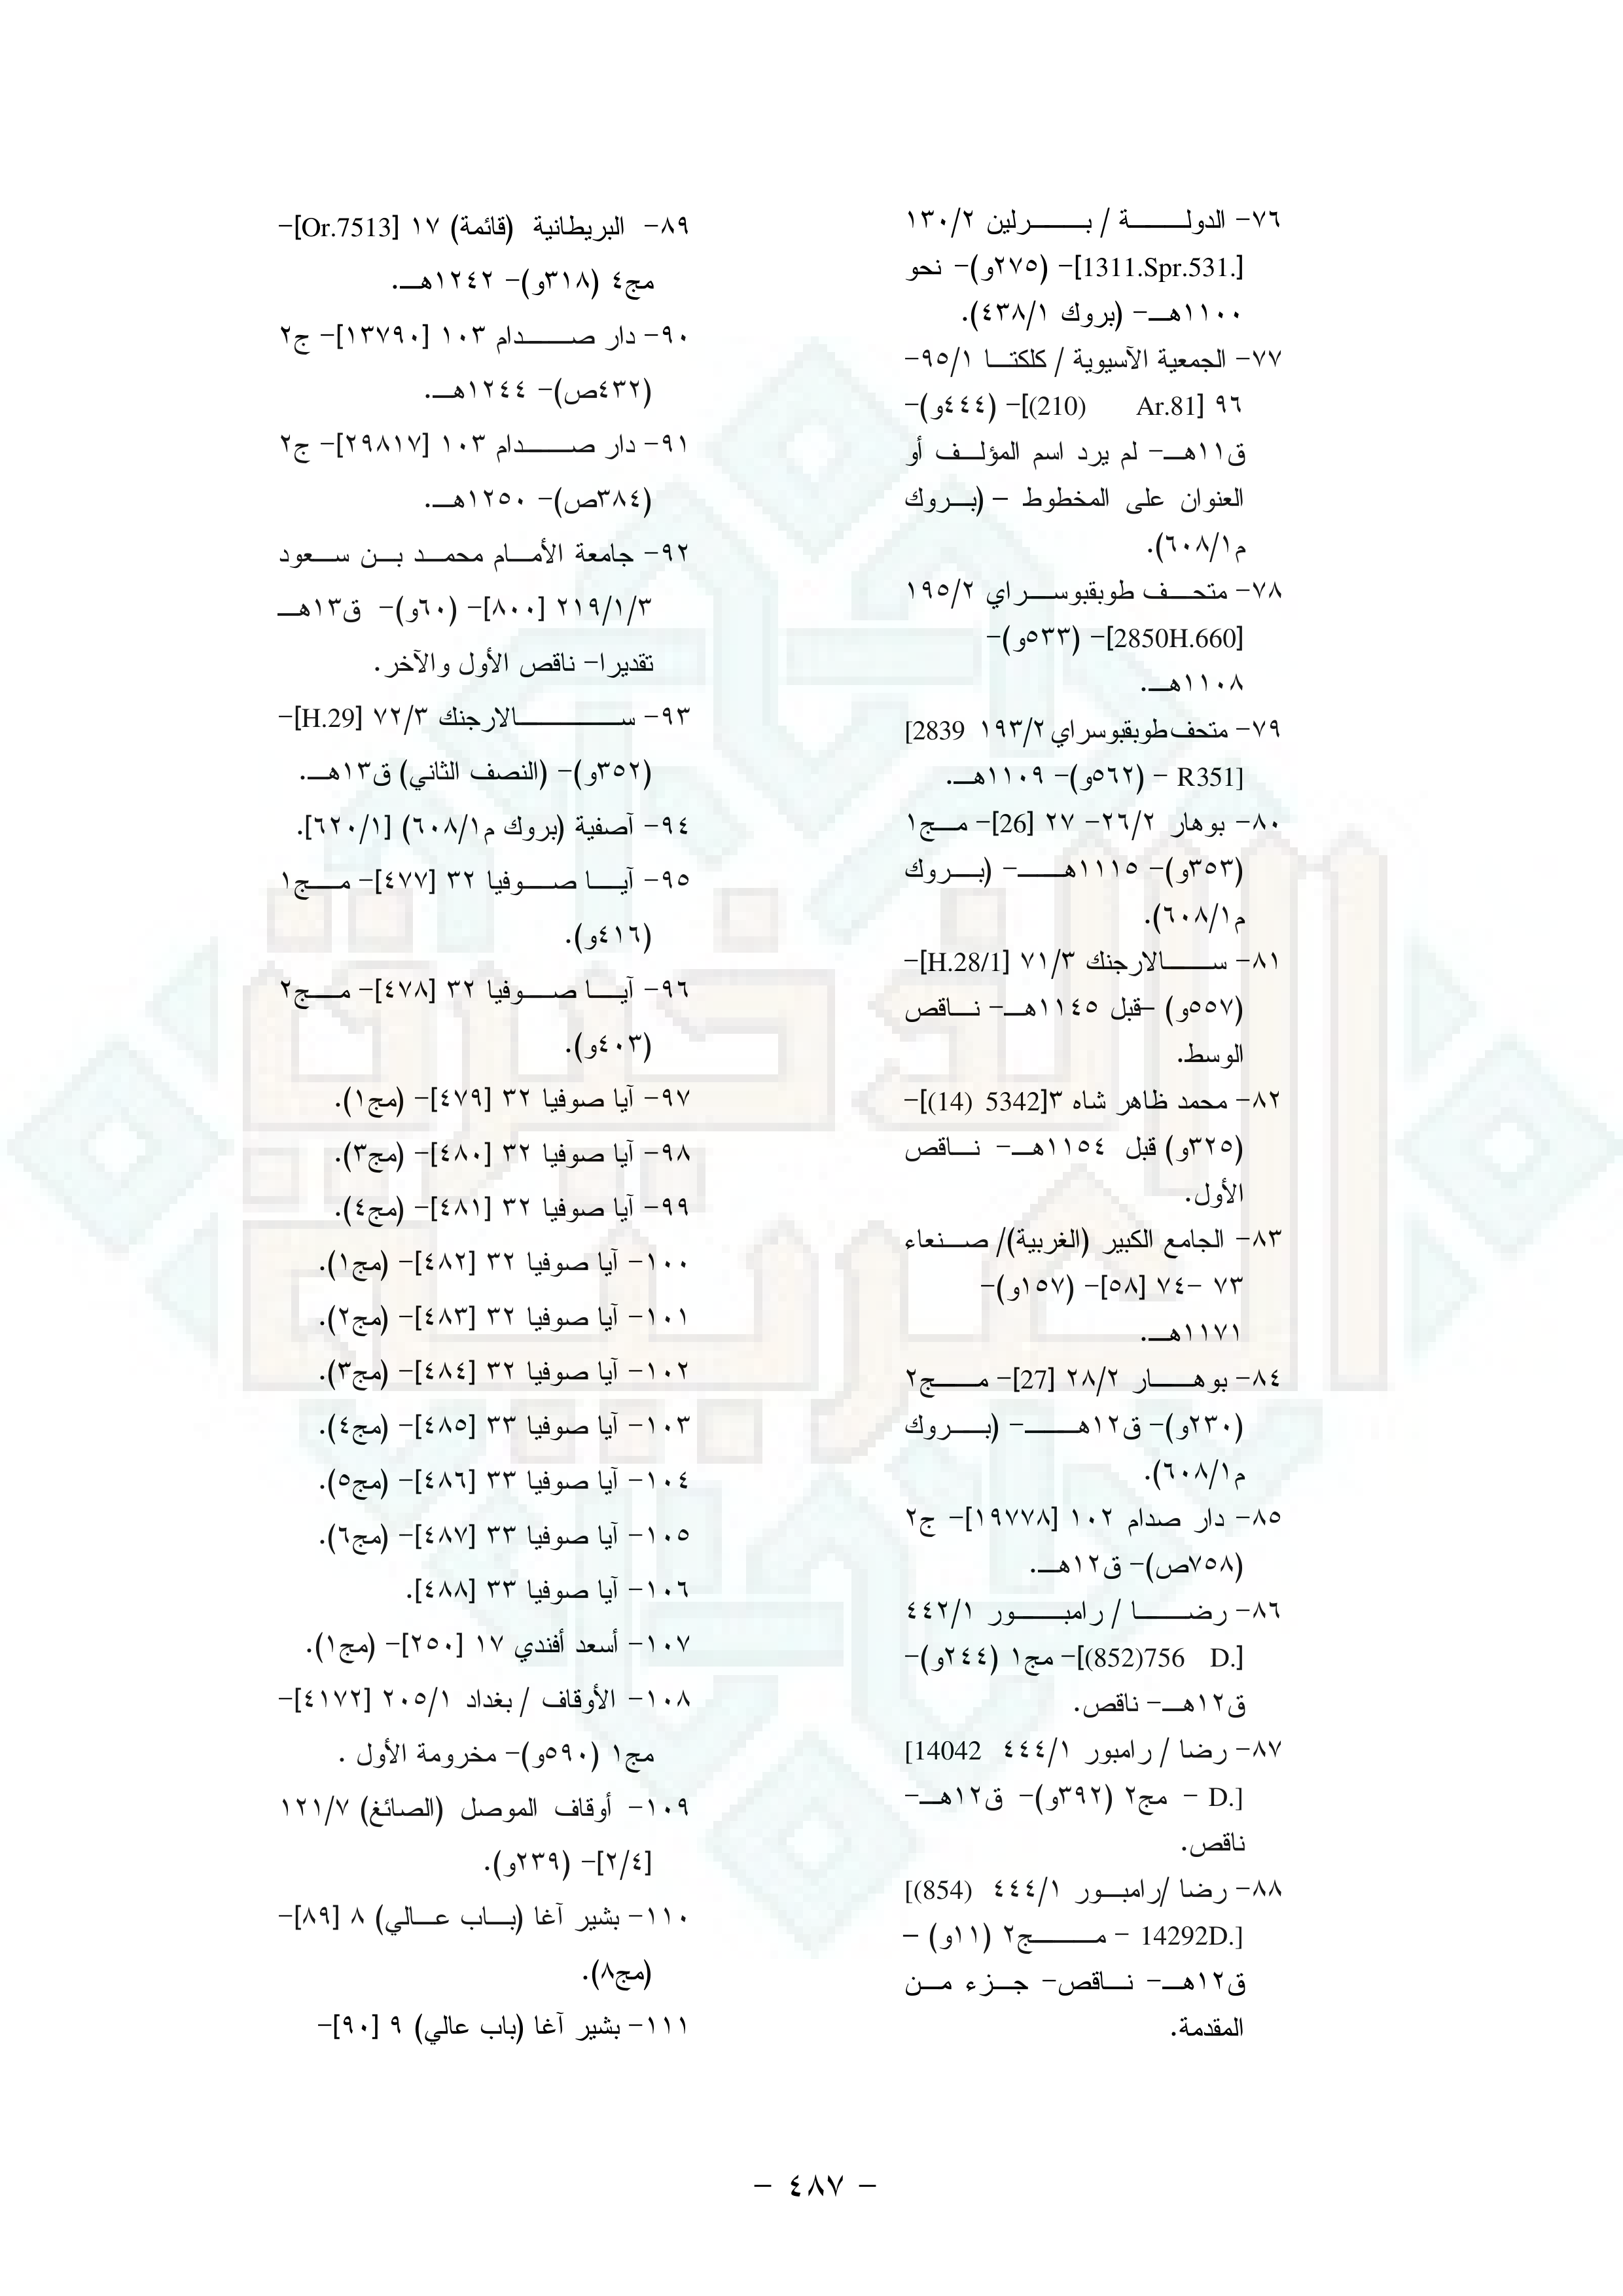 ٧٦- الدولة / برلين ١٣٠/٢
[1311.Spr.531.]- (٢٧٥و)- نحو
١١٠٠هـ- (بروك ٤٣٨/١).
٧٧- الجمعية الآسيوية / كلكتا ٩٥/١-
٩٦ [Ar.81 (210)]- (٤٤٤و)-
ق١١هـ- لم يرد اسم المؤلف أو
العنوان على المخطوط - (بروك
م٦٠٨/١).
٧٨- متحف طوبقبوسراي ١٩٥/٢
[2850H.660]- (٥٣٣و)-
١١٠٨هـ.
٧٩- متحف طوبقبوسراي ١٩٣/٢ [2839
R351] - (٥٦٢و)- ١١٠٩هـ.
٨٠- بوهار ٢٦/٢- ٢٧ [26]- مج١
(٣٥٣و)- ١١١٥هـ- (بروك
م٦٠٨/١).
٨١- سالارجنك ٧١/٣ [H.28/1]-
(٥٥٧و) -قبل ١١٤٥هـ- ناقص
الوسط.
٨٢- محمد ظاهر شاه ٣[5342 (14)]-
(٣٢٥و) قبل ١١٥٤هـ- ناقص
الأول.
٨٣- الجامع الكبير (الغربية)/ صنعاء
٧٣ -٧٤ [٥٨]- (١٥٧و)-
١١٧١هـ.
٨٤- بوهار ٢٨/٢ [27]- مج٢
(٢٣٠و)- ق١٢هـ- (بروك
م٦٠٨/١).
٨٥- دار صدام ١٠٢ [١٩٧٧٨]- ج٢
(٧٥٨ص)- ق١٢هـ.
٨٦- رضا / رامبور ٤٤٢/١
[.D 756(852)]- مج١ (٢٤٤و)-
ق١٢هـ- ناقص.
٨٧- رضا / رامبور ٤٤٤/١ [14042
D.] - مج٢ (٣٩٢و)- ق١٢هـ-
ناقص.
٨٨- رضا /رامبور ٤٤٤/١ [(854)
14292D.] - مج٢ (١١و) -
ق١٢هـ- ناقص- جزء من
المقدمة.
٨٩- البريطانية (قائمة) ١٧ [Or.7513]-
مج٤ (٣١٨و)- ١٢٤٢هـ.
٩٠- دار صدام ١٠٣ [١٣٧٩٠]- ج٢
(٤٣٢ص)- ١٢٤٤هـ.
٩١- دار صدام ١٠٣ [٢٩٨١٧]- ج٢
(٣٨٤ص)- ١٢٥٠هـ.
٩٢- جامعة الأمام محمد بن سعود
٢١٩/١/٣ [٨٠٠]- (٦٠و)- ق١٣هـ
تقديرا- ناقص الأول والآخر.
٩٣- سالارجنك ٧٢/٣ [H.29]-
(٣٥٢و)- (النصف الثاني) ق١٣هـ.
٩٤- آصفية (بروك م٦٠٨/١) [٦٢٠/١].
٩٥- آيا صوفيا ٣٢ [٤٧٧]- مج١
(٤١٦و).
٩٦- آيا صوفيا ٣٢ [٤٧٨]- مج٢
(٤٠٣و).
٩٧- آيا صوفيا ٣٢ [٤٧٩]- (مج١).
٩٨- آيا صوفيا ٣٢ [٤٨٠]- (مج٣).
٩٩- آيا صوفيا ٣٢ [٤٨١]- (مج٤).
١٠٠- آيا صوفيا ٣٢ [٤٨٢]- (مج١).
١٠١- آيا صوفيا ٣٢ [٤٨٣]- (مج٢).
١٠٢- آيا صوفيا ٣٢ [٤٨٤]- (مج٣).
١٠٣- آيا صوفيا ٣٣ [٤٨٥]- (مج٤).
١٠٤- آيا صوفيا ٣٣ [٤٨٦]- (مج٥).
١٠٥- آيا صوفيا ٣٣ [٤٨٧]- (مج٦).
١٠٦- آيا صوفيا ٣٣ [٤٨٨].
١٠٧- أسعد أفندي ١٧ [٢٥٠]- (مج١).
١٠٨- الأوقاف / بغداد ٢٠٥/١ [٤١٧٢]-
مج١ (٥٩٠و)- مخرومة الأول .
١٠٩- أوقاف الموصل (الصائغ) ١٢١/٧
[٢/٤]- (٢٣٩و).
١١٠- بشير آغا (باب عالي) ٨ [٨٩]-
(مج٨).
١١١- بشير آغا (باب عالي) ٩ [٩٠]-
- ٤٨٧ -
الذخيرة
العربية